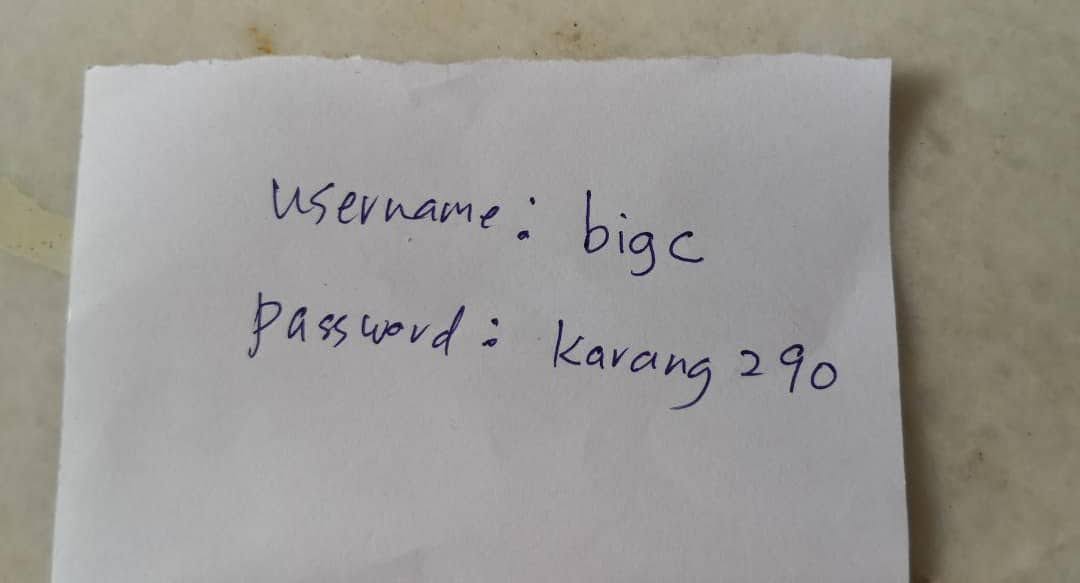 username: bigc
password: karang290